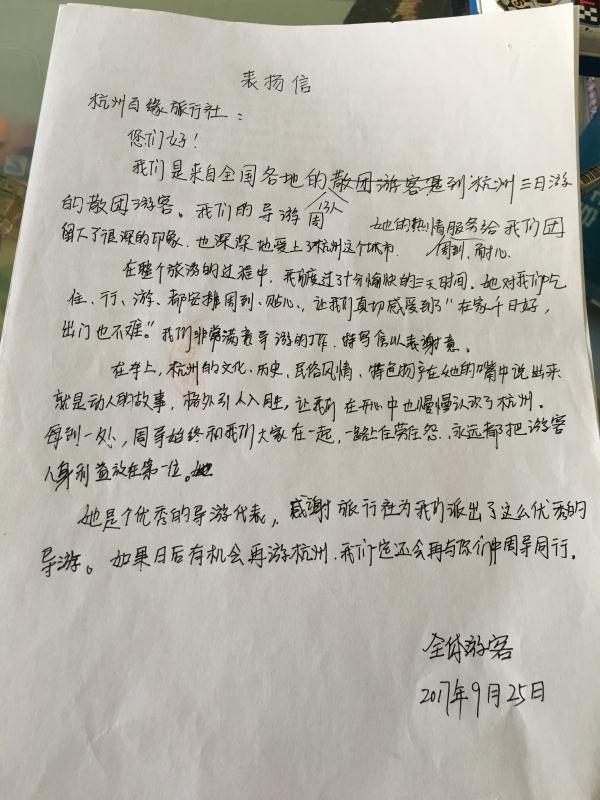 表扬信
杭州百缘旅行社：
您们好！
我们是来自全国各地的散团游客遇到杭州三日游
13人
的散团游客。我们的导游周 她的热情服务给我们团
周到、耐心
留下了很深的印象，也深深地爱上了杭州这个城市。
在整个旅游的过程中，我们度过了十分愉快的三天时间。她对我们吃
住、行、游、都安排周到、贴心，让我们真切感受到了“在家千日好，
出门也不难。”我们非常满意导游的工作，特写信以表谢意。
在车上，杭州的文化、历史、民俗风情、特色物产在她的嘴中说出来
就是动人的故事，格外引人入胜，让我们在开心中也慢慢认识了杭州。
每到一处，周导始终和我们大家在一起，一路上任劳任怨、永远都把游客
人身利益放在第一位。她
她是个优秀的导游代表，感谢旅行社为我们派出了这么优秀的
导游。如果日后有机会再游杭州，我们定还会再与你们中周导同行。
全体游客
2017年9月25日